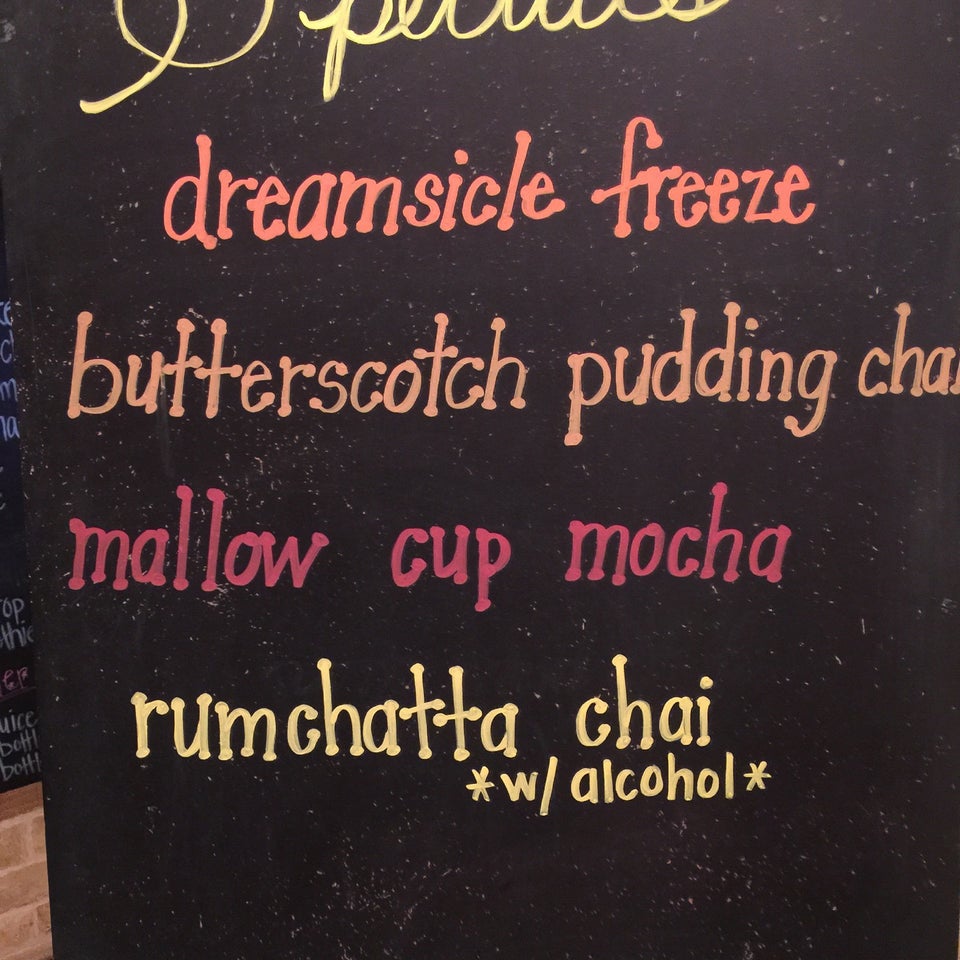 Specials
dreamsicle freeze
butterscotch pudding chai
mallow cup mocha
rumchatta chai
*w/ alcohol*